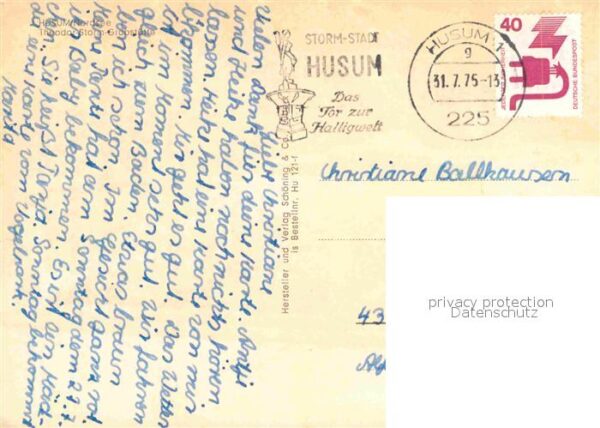 HUSUM/Nordsee
Theodor-Storm-Grabstätte
Liebe Christiane
Vielen dank für deine Karte. Antje
und Heike haben noch nichts hören
lassen. Heike hat eine Karte von mir
bekommen. Mir geht es gut. Das Wetter
ist im Moment sehr gut. Wir fahren
zum Baden. Etwas braun
bin ich schon. Im Gesicht ganz rot
hat am Sonntag dem 27.7.
ein Baby bekommen. Es ist ein Mäd-
chen. Sie heißt Tanja. Sonntag bekommt
vom Vogelpark.
Marita
Hersteller und Verlag Schöning & Co
Bestellnr. Hu 121-f
STORM-STADT
HUSUM
Das
Tor zur
Halligwelt
HUSUM 1
g
31.7.75-13
225
40
DEUTSCHE BUNDESPOST
Christiane Ballhausen
43
privacy protection
Datenschutz